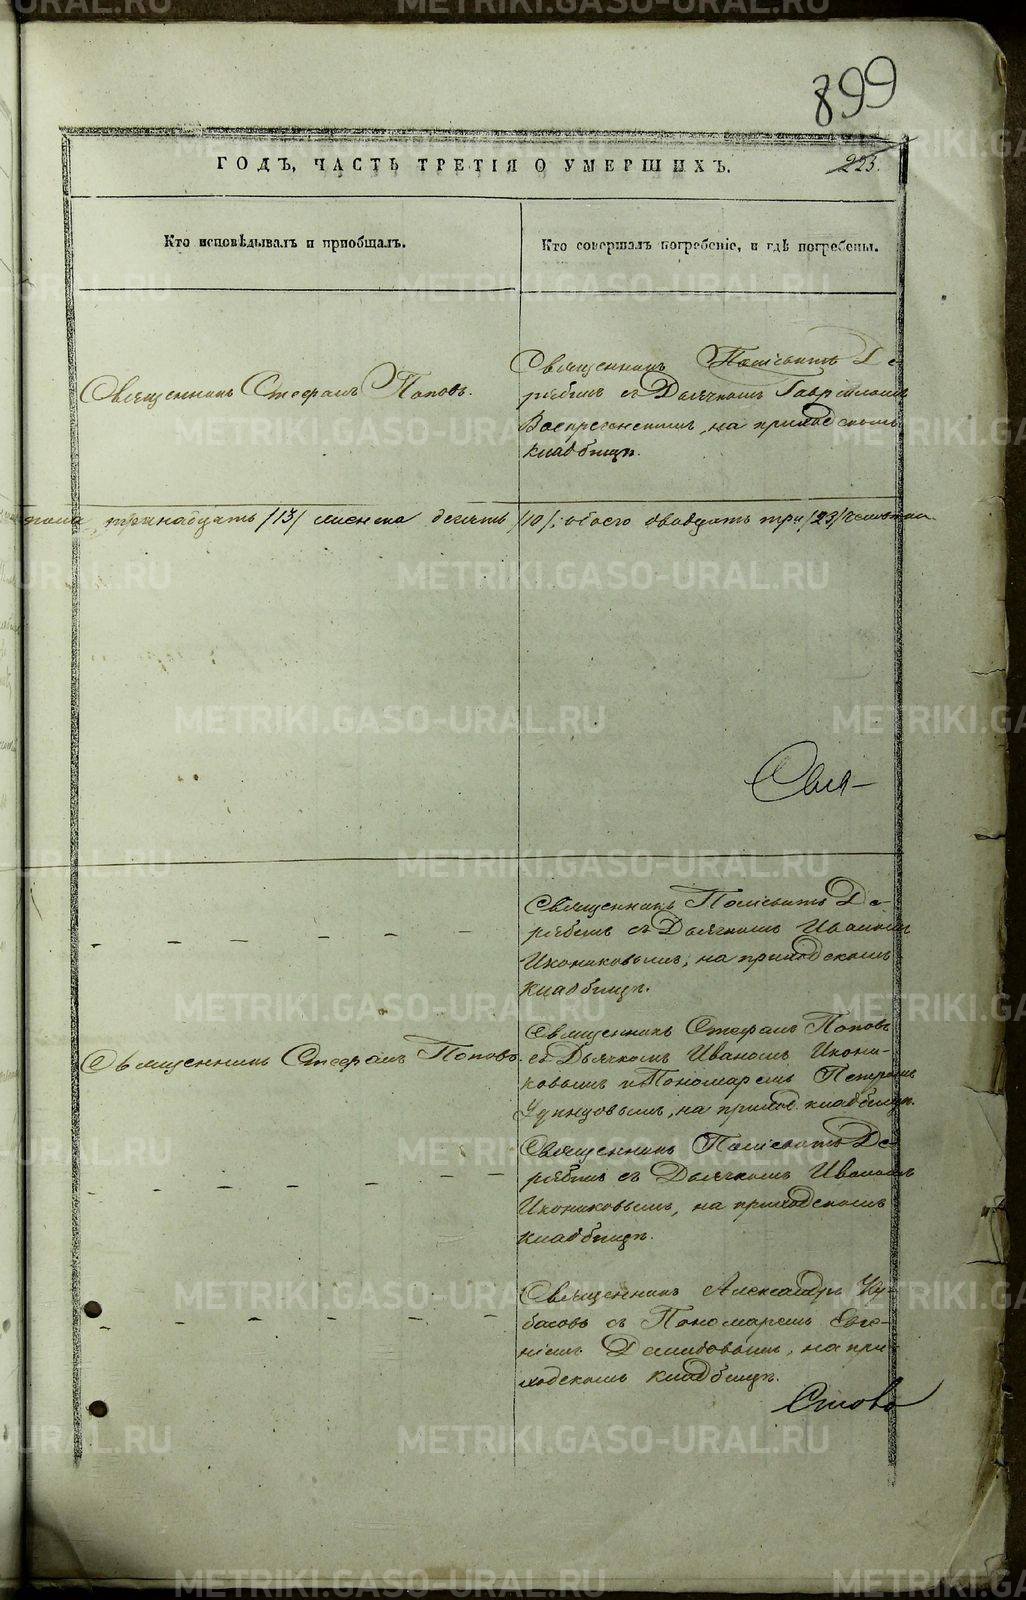 899
ГОДЪ, ЧАСТЬ ТРЕТІЯ О УМЕРШИХЪ.
225.
Кто исповѣдывалъ и пріобщалъ.
Кто совершалъ погребеніе, и гдѣ погребены.
Священникъ Стефанъ Поповъ.
Священникъ Поліевктъ Де-
рябинъ съ Дьячкомъ Гавріиломъ
Воскресенскимъ, на приходскомъ
кладбищѣ.
пола тринадцать /13/ женска десять /10/, обоего двадцать три /23/ человека.
Свя-
Священникъ Поліевктъ Де-
рябинъ съ Дьячкомъ Иваномъ
Икониковымъ, на приходскомъ
кладбищѣ.
Священникъ Стефанъ Поповъ.
Священникъ Стефанъ Поповъ
съ Дьячкомъ Иваномъ Икони-
ковымъ и Пономаремъ Петромъ
на приход. кладбищѣ.
Священникъ Поліевктъ Де-
рябинъ съ Дьячкомъ Иваномъ
Икониковымъ, на приходскомъ
кладбищѣ.
Священникъ Александръ Ку-
басовъ съ Пономаремъ Евге-
ніемъ на при-
ходскомъ кладбищѣ.
METRIKI.GASO-URAL.RU